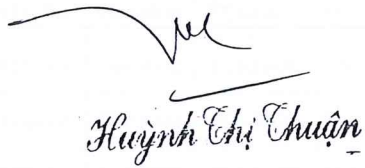 Huỳnh Thị Thuận